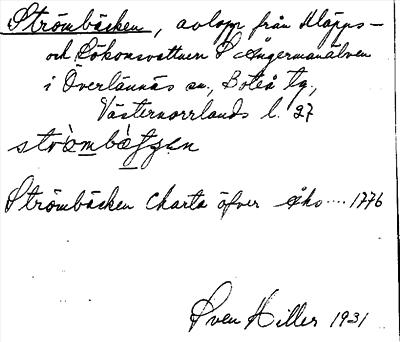 Strömbäcken, avlopp från Kläpps-
och Sökonsvattnen t. Ångermanälven
i Överlännäs sn., Boteå tg,
Västernorrlands l. 27
Strömbäcken Charta öfver Åho .... 1776
Sven Hiller 1931